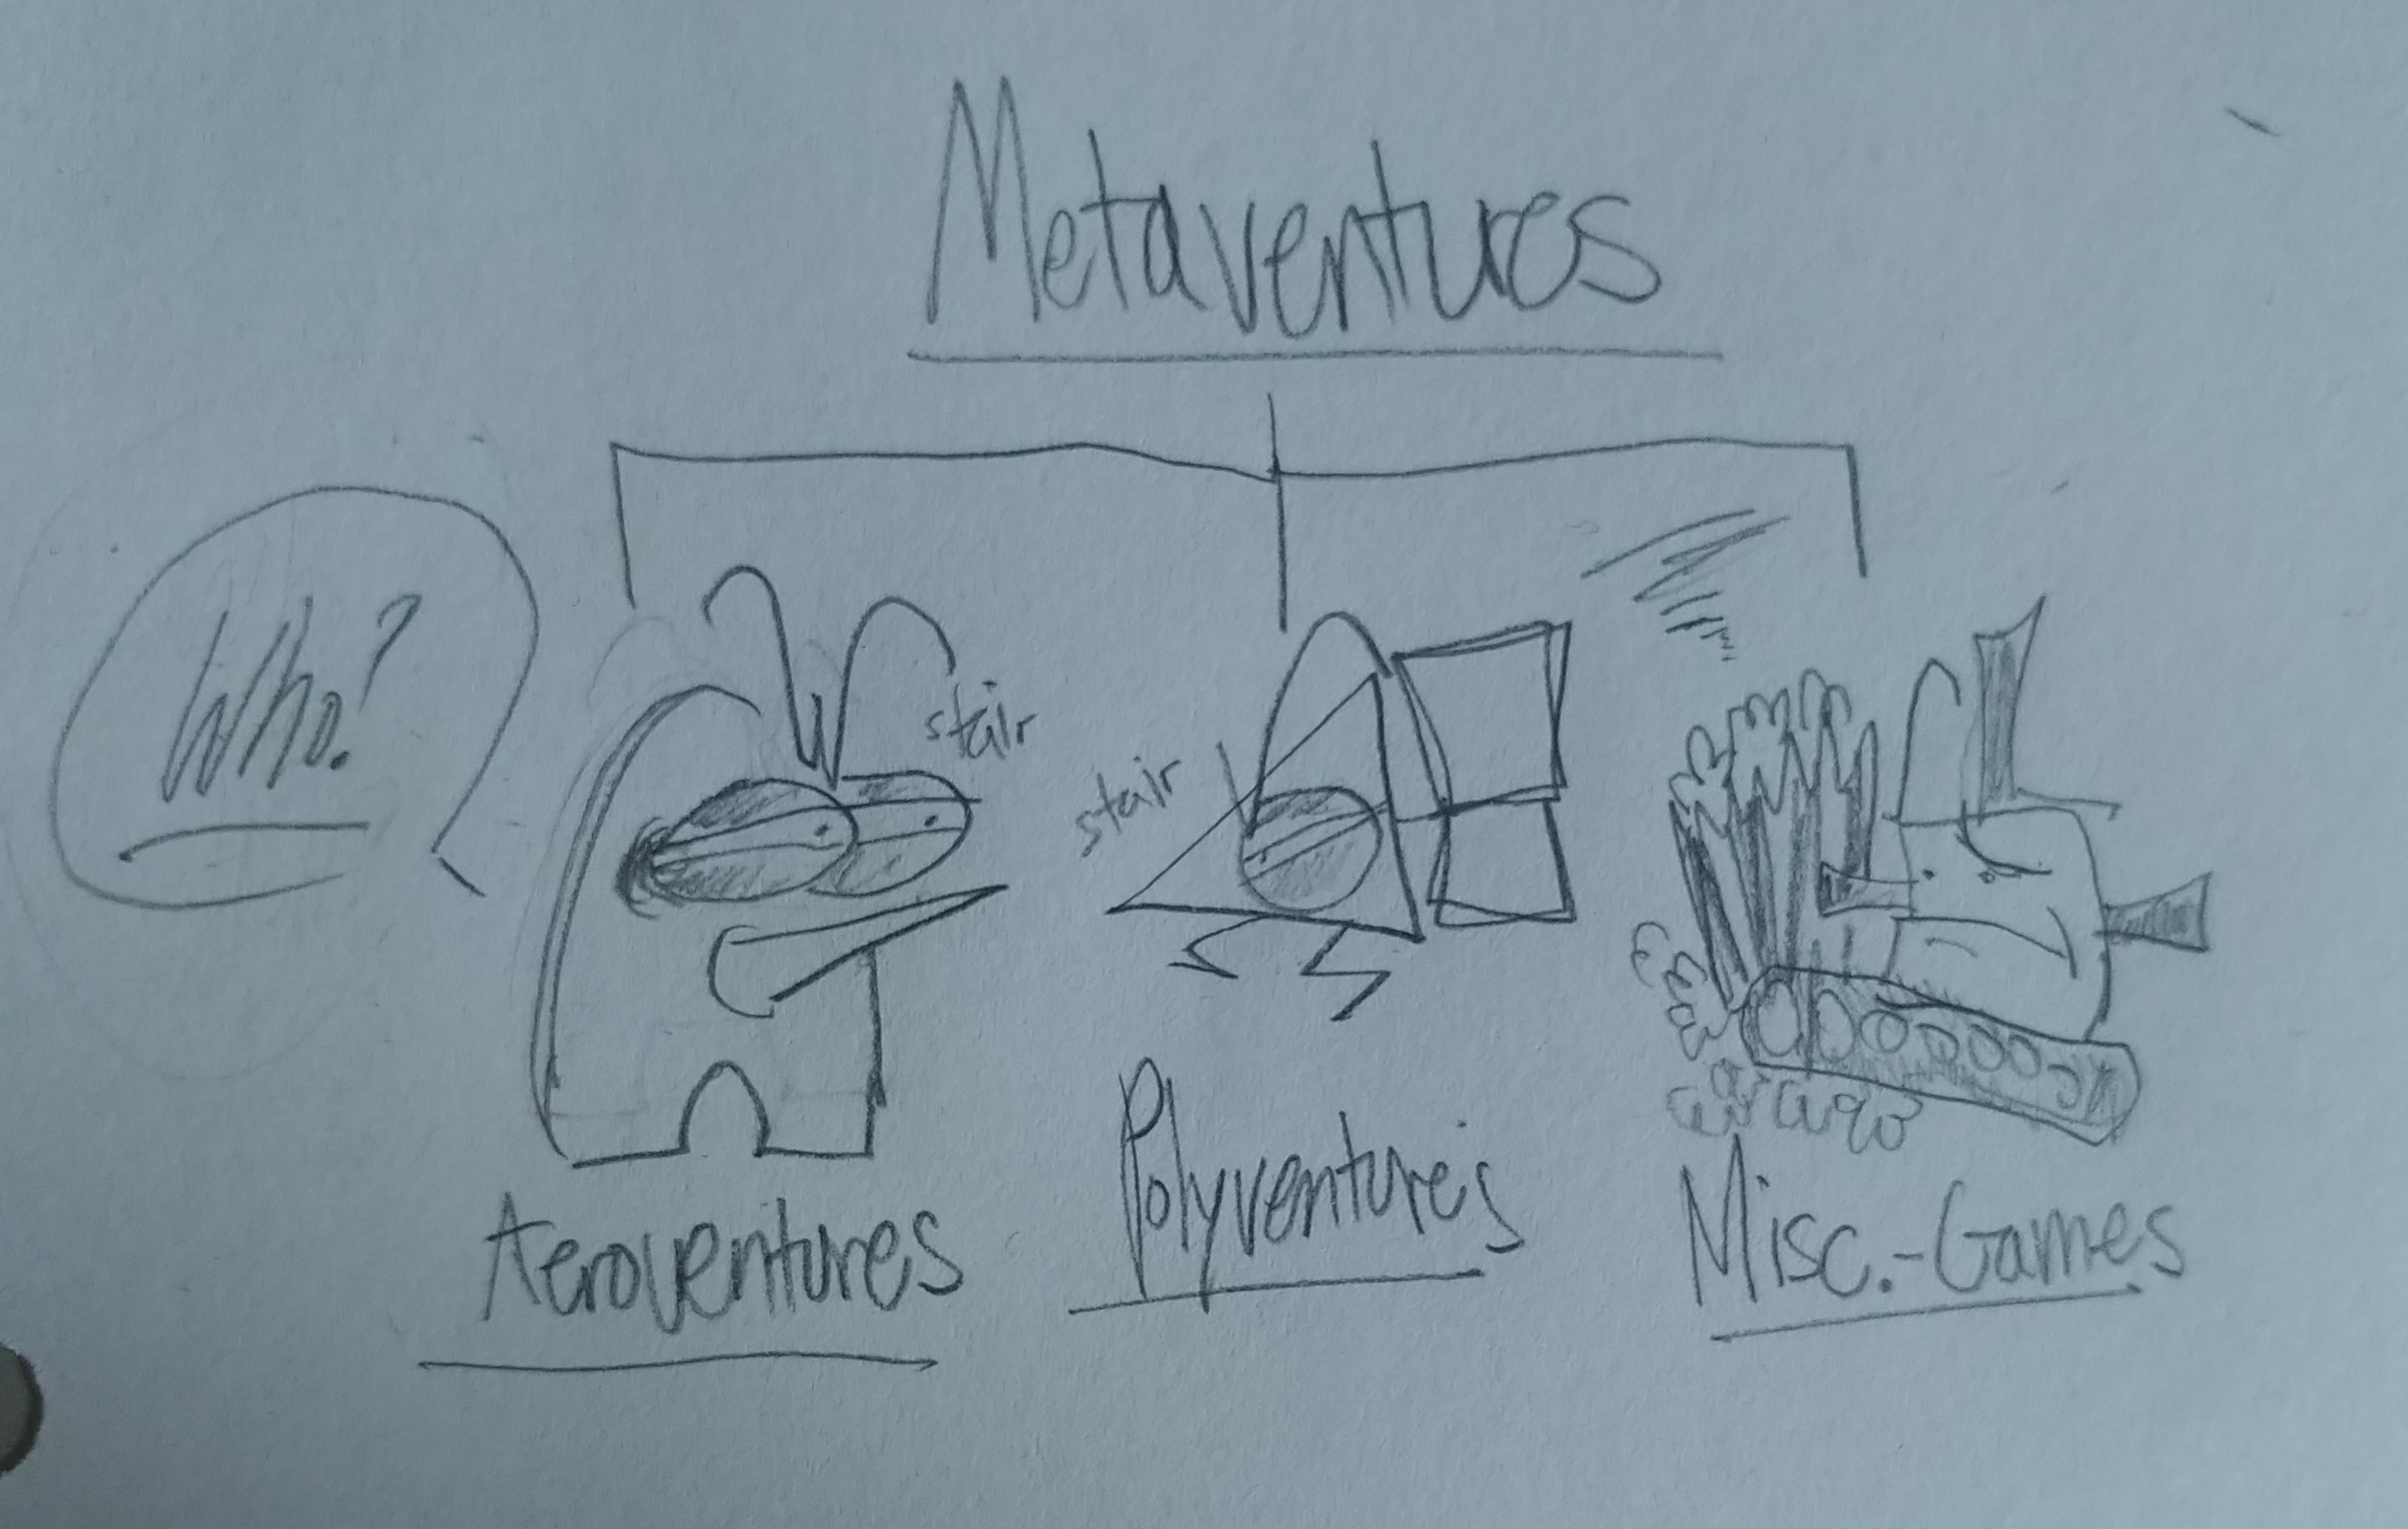 Metaventures
Who?
stair
stair
Aeroventures
Polyventures
Misc.-Games